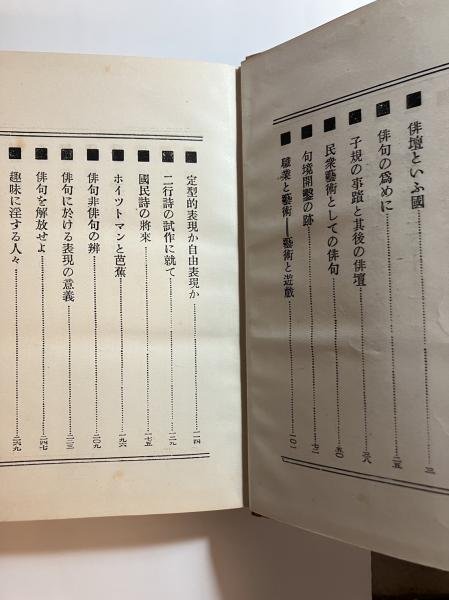 俳壇といふ國……三
俳句の爲めに……二五
子規の事蹟と其後の俳壇……三八
民衆藝術としての俳句……五〇
句境開鑿の跡……七二
職業と藝術——藝術と遊戲……一〇一
定型的表現か自由表現か……一一四
二行詩の試作に就て……一三九
國民詩の將來……一七五
ホイツトマンと芭蕉……一九六
俳句非俳句の辨……二〇九
俳句に於ける表現の意義……二二三
俳句を解放せよ……二四七
趣味に淫する人々……二六九